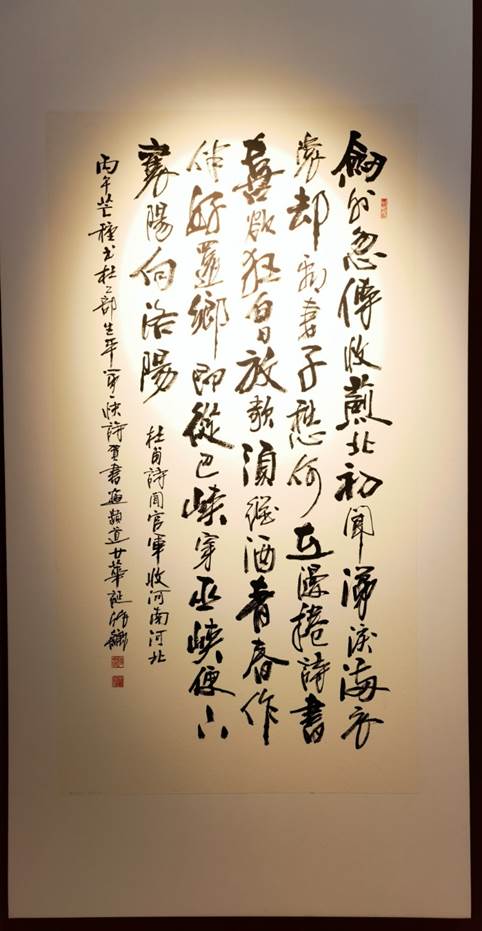 劍外忽傳收薊北初聞涕淚滿衣
裳却看妻子愁何在漫捲詩書
喜欲狂白日放歌須縱酒青春作
伴好還鄉即從巴峽穿巫峽便下
襄陽向洛陽
杜甫詩聞官軍收河南河北
丙午芒種書杜工部生平第一快詩賀書畫頻道廿華誕